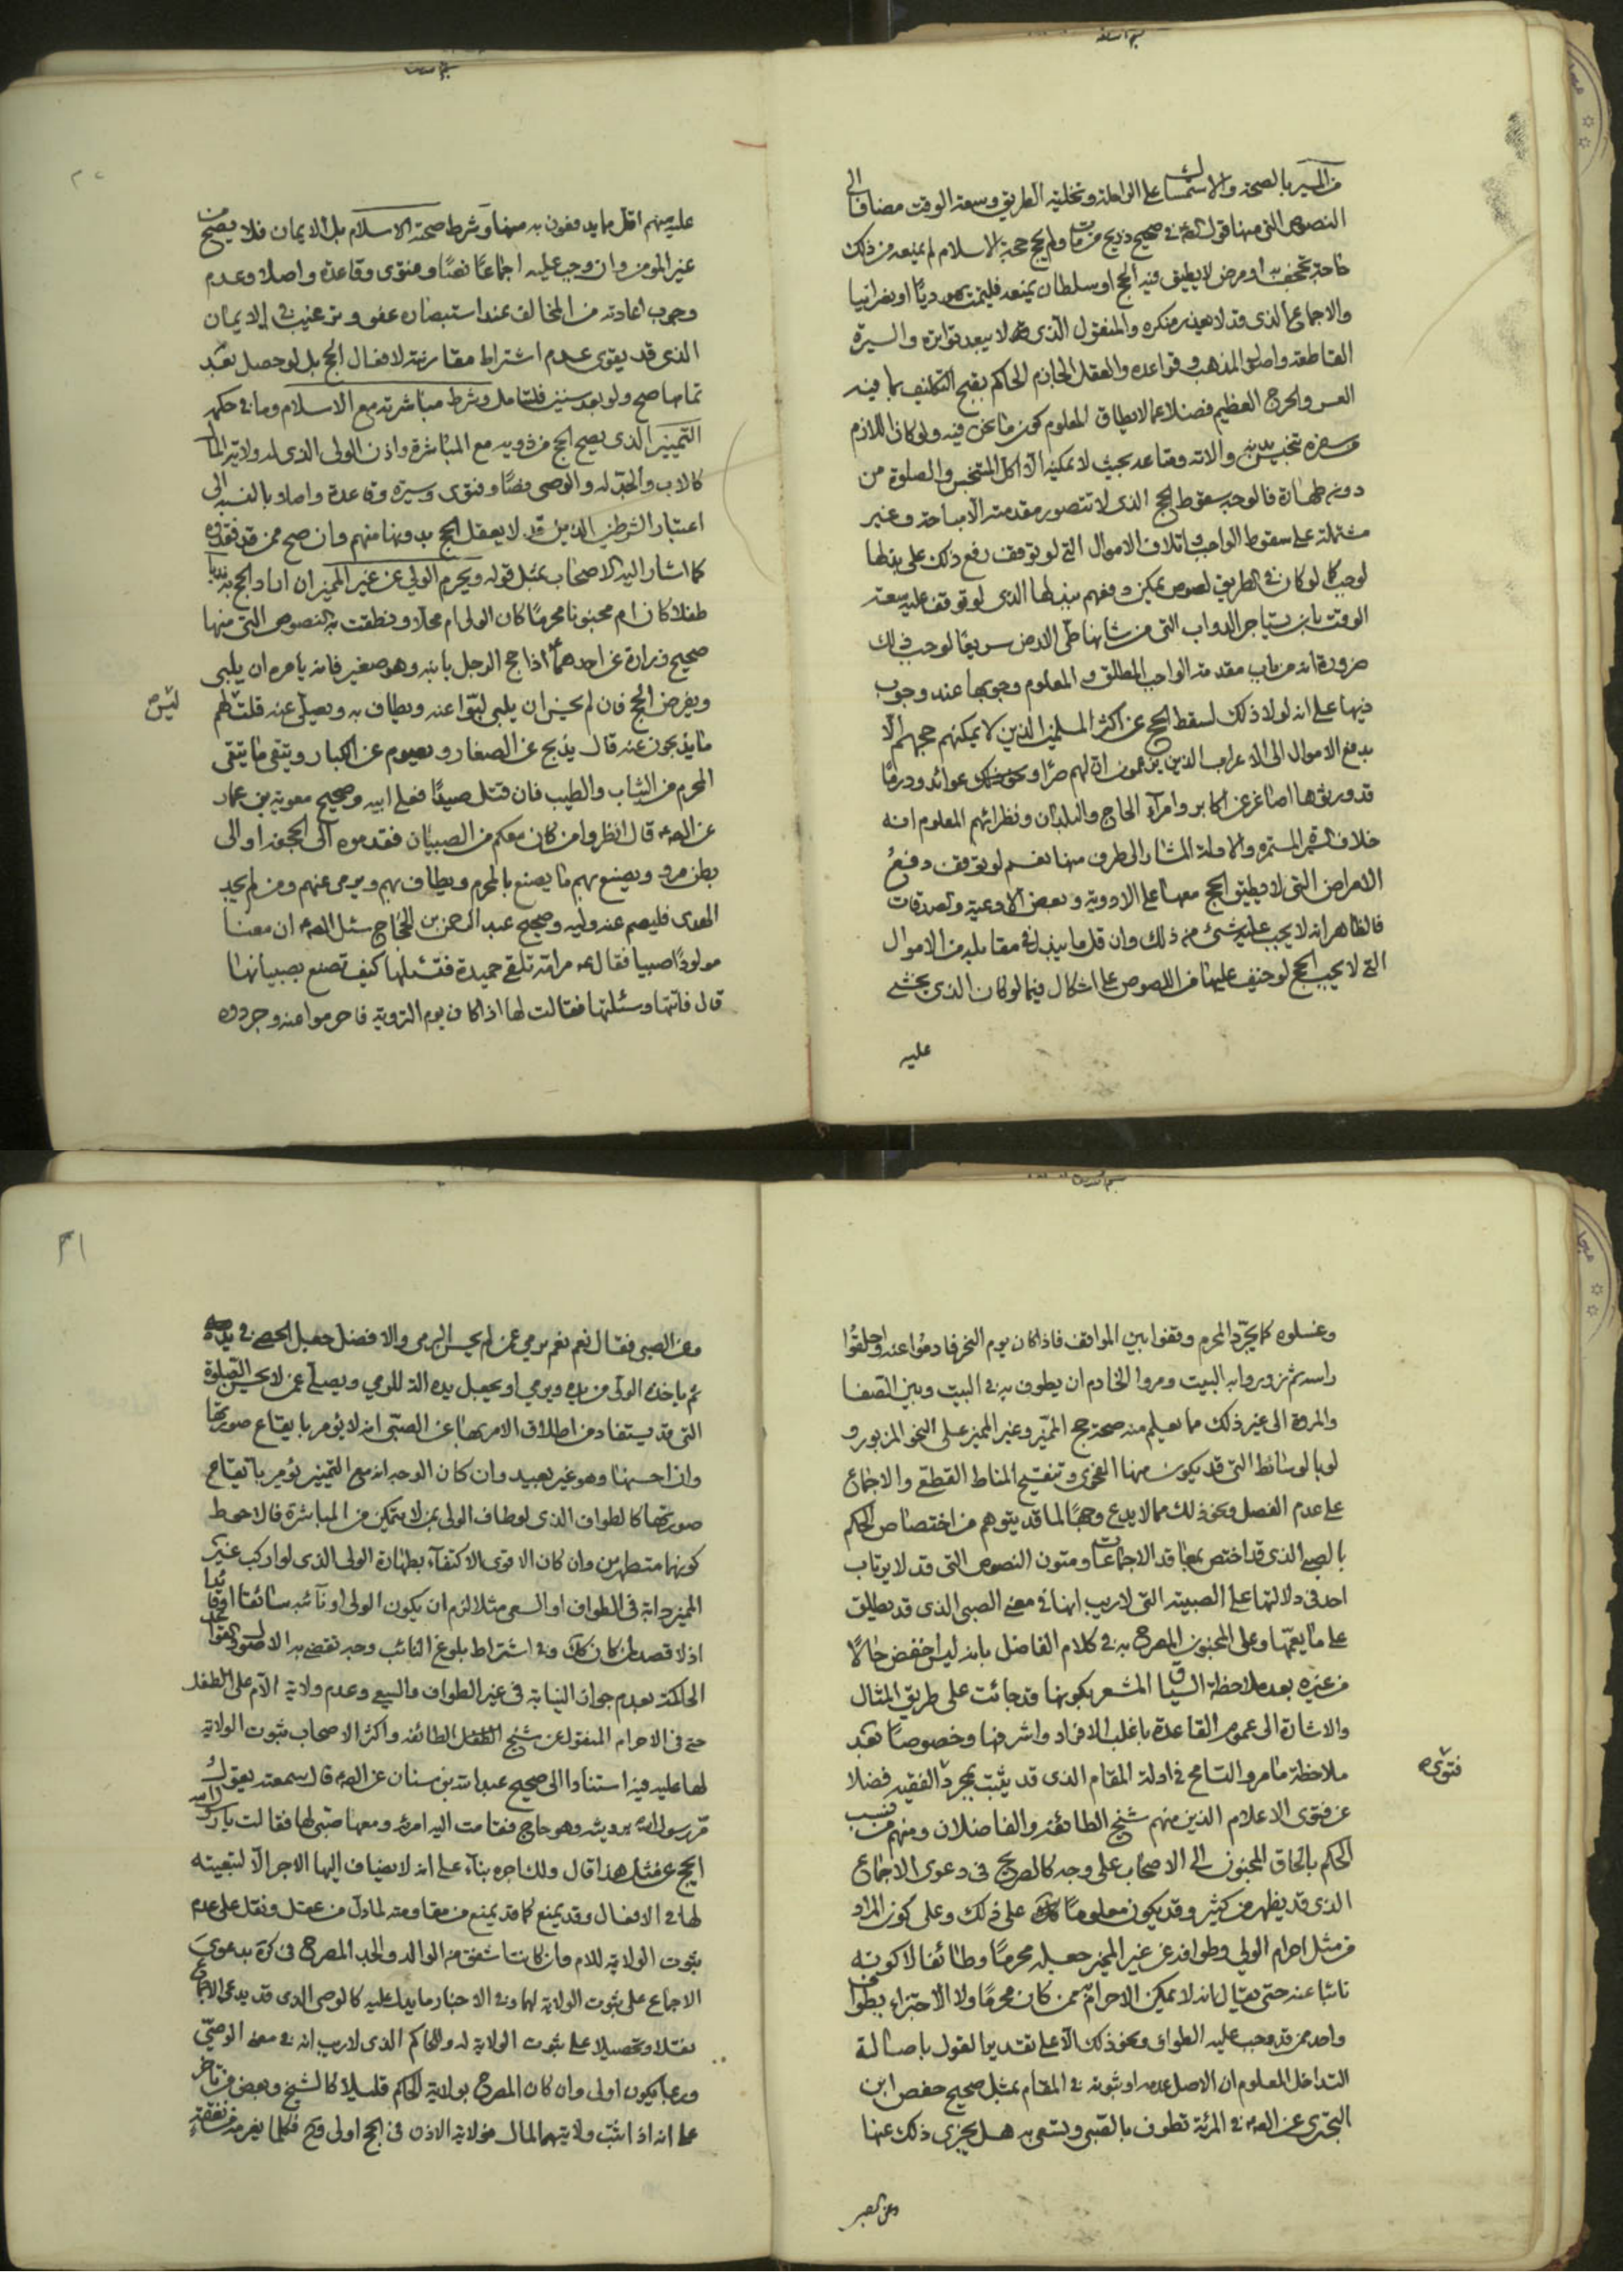 من المسير بالصحة والاستمساك على الراحلة وتخلية الطريق وسعة الوقت مضافا الى
النصوص التي منها قول في صحيح ذريح من مات ولم يحج حجة الاسلام لم يمنعه من ذلك
حاجة تجحف به او مرض لا يطيق فيه الحج او سلطان يمنعه فليمت يهوديا او نصرانيا
والاجماع الذي قد لا يعذر منكره والمنقول الذي لا يبعد تواتره والسيرة
القاطعة واصول المذهب وقواعده والعقل الجازم الحاكم بقبح التكليف بما فيه
العسر والحرج العظيم فضلا عما لا يطاق المعلوم كون ما نحن فيه ولو كان اللازم
من سفره تنجيس بدنه والاته ومتاعه بحيث لا يمكنه الا اكل المتنجس والصلوة من
دونه طهارة فالوجه سقوط الحج الذي لا تتصور مقدمته الا مباحة وغير
مشتملة على سقوط الواجب واتلاف الاموال التي لو توقف رفع ذلك على بذلها
لوجب كما لو كان في الطريق لصوص يمكن دفعهم ببذلها الذي لو توقف عليه سعة
الوقت بان يستاجر الدواب التي من شانها طي الارض سريعا لوجب ذلك
ضرورة انه من باب مقدمة الواجب المطلق والمعلوم وجوبها عند وجوب
ذيها على انه لولا ذلك لسقط الحج عن اكثر المسلمين الذين لا يمكنهم حجهم الا
بدفع الاموال الى الاعراب الذين يزعمون ان لهم عوائد ودرقا
قد ورثوها اصاغر عن اكابر وامراء الحاج والبلدان ونظرائهم المعلوم انه
خلاف السيرة المستمرة والادلة المشار الى طرف منها نعم لو توقف دفع
الامراض التي لا يطيق الحج معها على الادوية وبعض الاوعية وتصدقات
فالظاهر انه لا يجب عليه شئ من ذلك وان قل ما يبذل في مقابله من الاموال
التي لا يجب الحج لو خيف عليها من اللصوص على اشكال فيما لو كان الذي يخشى
عليه
عليه منهم اقل مما يدفعون به منها وشرط صحته الاسلام بل الايمان فلا يصح من
غير المومن وان وجب عليه اجماعا نصا وفتوى وقاعدة واصلا وعدم
وجوب اعادته من المخالف عند استبصاره عفو وترغيب في الايمان
الذي قد يقوى عدم اشتراط مقارنته لافعال الحج بل لو حصل بعد
تمامها صح ولو بعد سنين فليتامل وشرط مباشرته مع الاسلام وما في حكمه
التمييز الذي يصح الحج من ذويه مع المباشرة واذن الولي الذي له ولاية المال
كالاب والجد له والوصي نصا وفتوى وسيرة وقاعدة واصلا بالنسبة الى
اعتبار الشرطين الذين قد لا يعقل الحج بدونها منهم وان صح ممن قد فقده
كما اشار اليه الاصحاب بمثل قوله ويحرم الولي عن غير المميز ان اراد الحج به ندبا
طفلا كان ام مجنونا محرما كان الولي ام محلا ونطقت به النصوص التي منها
صحيح زرارة عن احدهما اذا حج الرجل بابنه وهو صغير فانه يامره ان يلبي
ويفرض الحج فان لم يحسن ان يلبي لبوا عنه ويطاف به ويصلى عنه قلت ليس لهم
ما يذبحون عنه قال يذبح عن الصغار ويصوم عن الكبار ويتقى ما يتقى
المحرم من الثياب والطيب فان قتل صيدا فعلى ابيه وصحيح معوية بن عمار
عن الص قال انظروا من كان معكم من الصبيان فقدموه الى الجحفة او الى
بطن مر ويصنع بهم ما يصنع بالمحرم ويطاف بهم ويرمى عنهم ومن لم يجد
الهدى فليصم عنه وليه وصحيح عبد الرحمن بن الحجاج سئل الص ان معنا
مولودا صبيا فقال مر امه تلقى حميدة فتسئلها كيف تصنع بصبيانها
قال فاتتها وسئلتها فقالت لها اذا كان يوم التروية فاحرموا عنه وجردوه
وغسلوه كما يجرد المحرم وقفوا به المواقف فاذا كان يوم النحر فارموا عنه واحلقوا
راسه ثم زوروا به البيت ومروا الخادم ان يطوف به في البيت وبين الصفا
والمروة الى غير ذلك مما يعلم منه صحة حج المميز وغير المميز على النحو المزبور و
لو بالوسائط التي قد يكون منها الفحوى وتنقيح المناط القطعي والاجماع
على عدم الفصل ونحو ذلك مما لا يدع وجها لما قد يتوهم من اختصاص الحكم
بالصبي الذي قد اختص بمعاقد الاجماعات ومتون النصوص التي قد لا يرتاب
احد في دلالتها على الصبية التي لا ريب انها في معنى الصبي الذي قد يطلق
على ما يعمها وعلى المجنون المصرح به في كلام الفاضل بانه ليس اخفض حالا
من غيره بعد ملاحظة السياق المشعر بكونها قد جائت على طريق المثال
والاشارة الى عموم القاعدة باغلب الافراد واشرفها وخصوصا بعد
ملاحظة ما مر والتسامح في ادلة المقام الذي قد يثبت بمجرد فتوى الفقيه فضلا
عن فتوى الاعلام الذين منهم شيخ الطائفة والفاضلان ومنهم من نسب
الحكم بالحاق المجنون الى الاصحاب على وجه كالصريح في دعوى الاجماع
الذي قد يظهر من كثير وقد يكون معلوما على ذلك وعلى كون المراد
من مثل احرام الولي وطوافه عن غير المميز جعله محرما وطائفا لا كونه
نائبا عنه حتى يقال بانه لا يمكن الاحرام ممن كان محرما ولا الاجتزاء بطواف
واحد ممن قد وجب عليه الطواف ونحو ذلك الا على تقدير القول باصالة
التداخل المعلوم ان الاصل عدمه او ثبوته في المقام بمثل صحيح حفص ابن
البختري عن الص في المرئة تطوف بالصبي وتسعى به هل يجزي ذلك عنها
وعن الصبي
وعن الصبي فقال نعم نعم يرمي عمن لم يحسن الرمي والافضل جعل الحصى في يده
ثم ياخذه الولي من يده ويرمي او يجعل يده الة للرمي ويصلى عمن لا يحسن الصلوة
التي قد يستفاد من اطلاق الامر بها عن الصبي انه لا يؤمر بايقاع صورتها
وان احسنها وهو غير بعيد وان كان الوجه انه مع التمييز يؤمر بايقاع
صورتها كالطواف الذي لو طاف الولي بمن لا يتمكن من المباشرة فالاحوط
كونهما متطهرين وان كان الاقوى الاكتفاء بطهارة الولي الذي لو اركب غير
المميز دابة في الطواف او السعي مثلا لزم ان يكون الولي او نائبه سائقا او قائدا
اذ لا قصد وفي اشتراط بلوغ النائب وجه تقضي به الاصول والقواعد
الحاكمة بعدم جواز النيابة في غير الطواف والسعي وعدم ولاية الام على الطفل
حتى في الاحرام المنقول عن شيخ الطائفة واكثر الاصحاب ثبوت الولاية
لها عليه فيه استنادا الى صحيح عبد الله بن سنان عن الص قال سمعته يقول
مر رسول الله برويثة وهو حاج فقامت اليه امرئة ومعها صبي لها فقالت يا رسول الله
ايحج عن مثل هذا قال ولك اجره بناء على انه لا يضاف اليها الاجر الا لتبعيته
لها في الافعال وقد يمنع كما قد يمنع من مقاومته لما دل من عقل ونقل على عدم
ثبوت الولاية للام وان كانت اشفق من الوالد والجد المصرح في كره بدعوى
الاجماع على ثبوت الولاية لهما وفي الاخبار ما يدل عليه كالوصي الذي قد يدعى الاجماع
نقلا وتحصيلا على ثبوت الولاية له والحاكم الذي لا ريب انه في معنى الوصي
وربما يكون اولى وان كان المصرح بولاية الحاكم قليلا كالشيخ وبعض من تاخر
على انه اذا ثبت ولايتهما المال فولاية الاذن في الحج اولى وح فكلما يغرمه من نفقة
ليس
فتوى
٣١